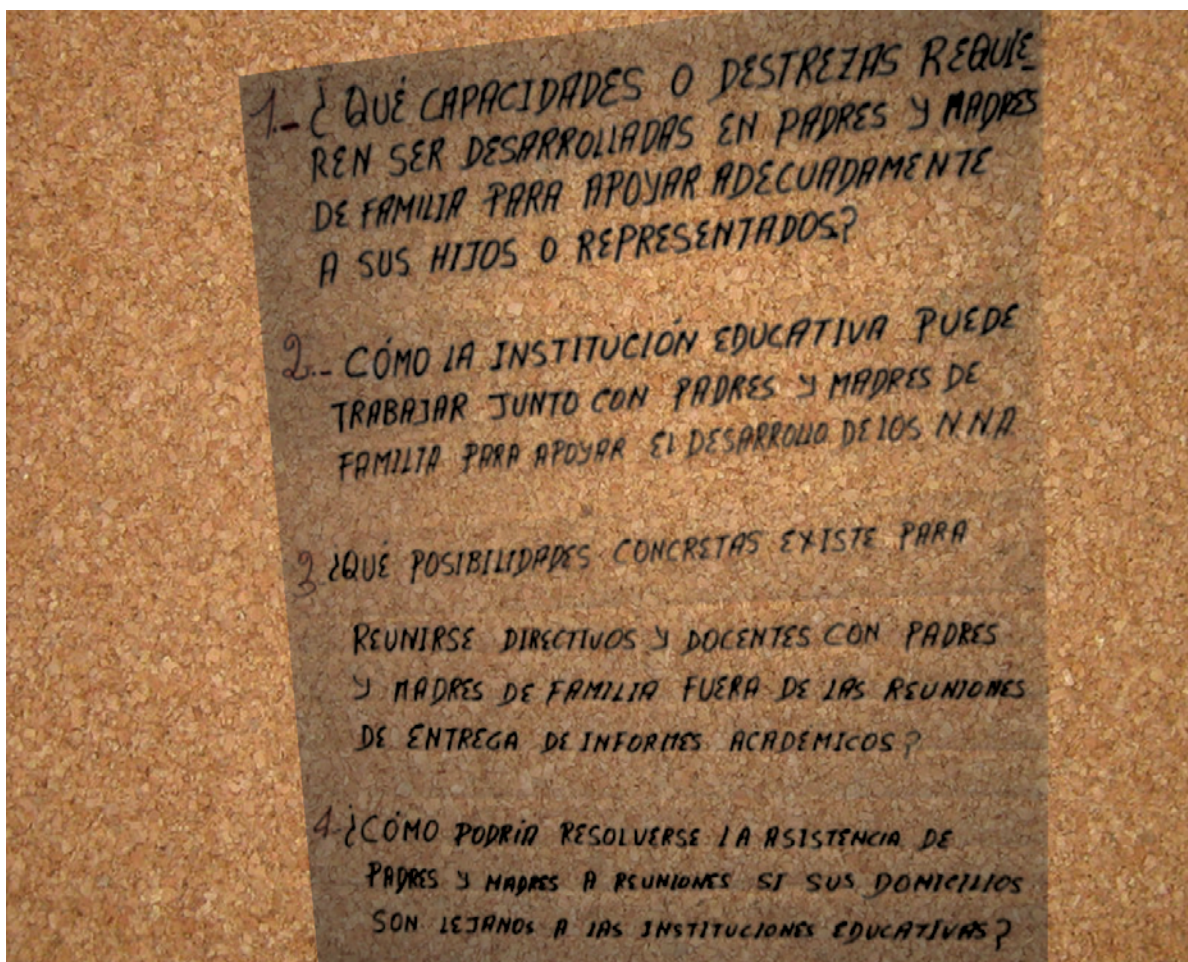 1.- ¿QUÉ CAPACIDADES O DESTREZAS REQUIE
REN SER DESARROLLADAS EN PADRES Y MADRES
DE FAMILIA PARA APOYAR ADECUADAMENTE
A SUS HIJOS O REPRESENTADOS?
2.- CÓMO LA INSTITUCIÓN EDUCATIVA PUEDE
TRABAJAR JUNTO CON PADRES Y MADRES DE
FAMILIA PARA APOYAR EL DESARROLLO DE LOS N.N.A
3 ¿QUÉ POSIBILIDADES CONCRETAS EXISTE PARA
REUNIRSE DIRECTIVOS Y DOCENTES CON PADRES
Y MADRES DE FAMILIA FUERA DE LAS REUNIONES
DE ENTREGA DE INFORMES ACADÉMICOS?
4- ¿CÓMO PODRÍA RESOLVERSE LA ASISTENCIA DE
PADRES Y MADRES A REUNIONES SI SUS DOMICILIOS
SON LEJANOS A LAS INSTITUCIONES EDUCATIVAS?